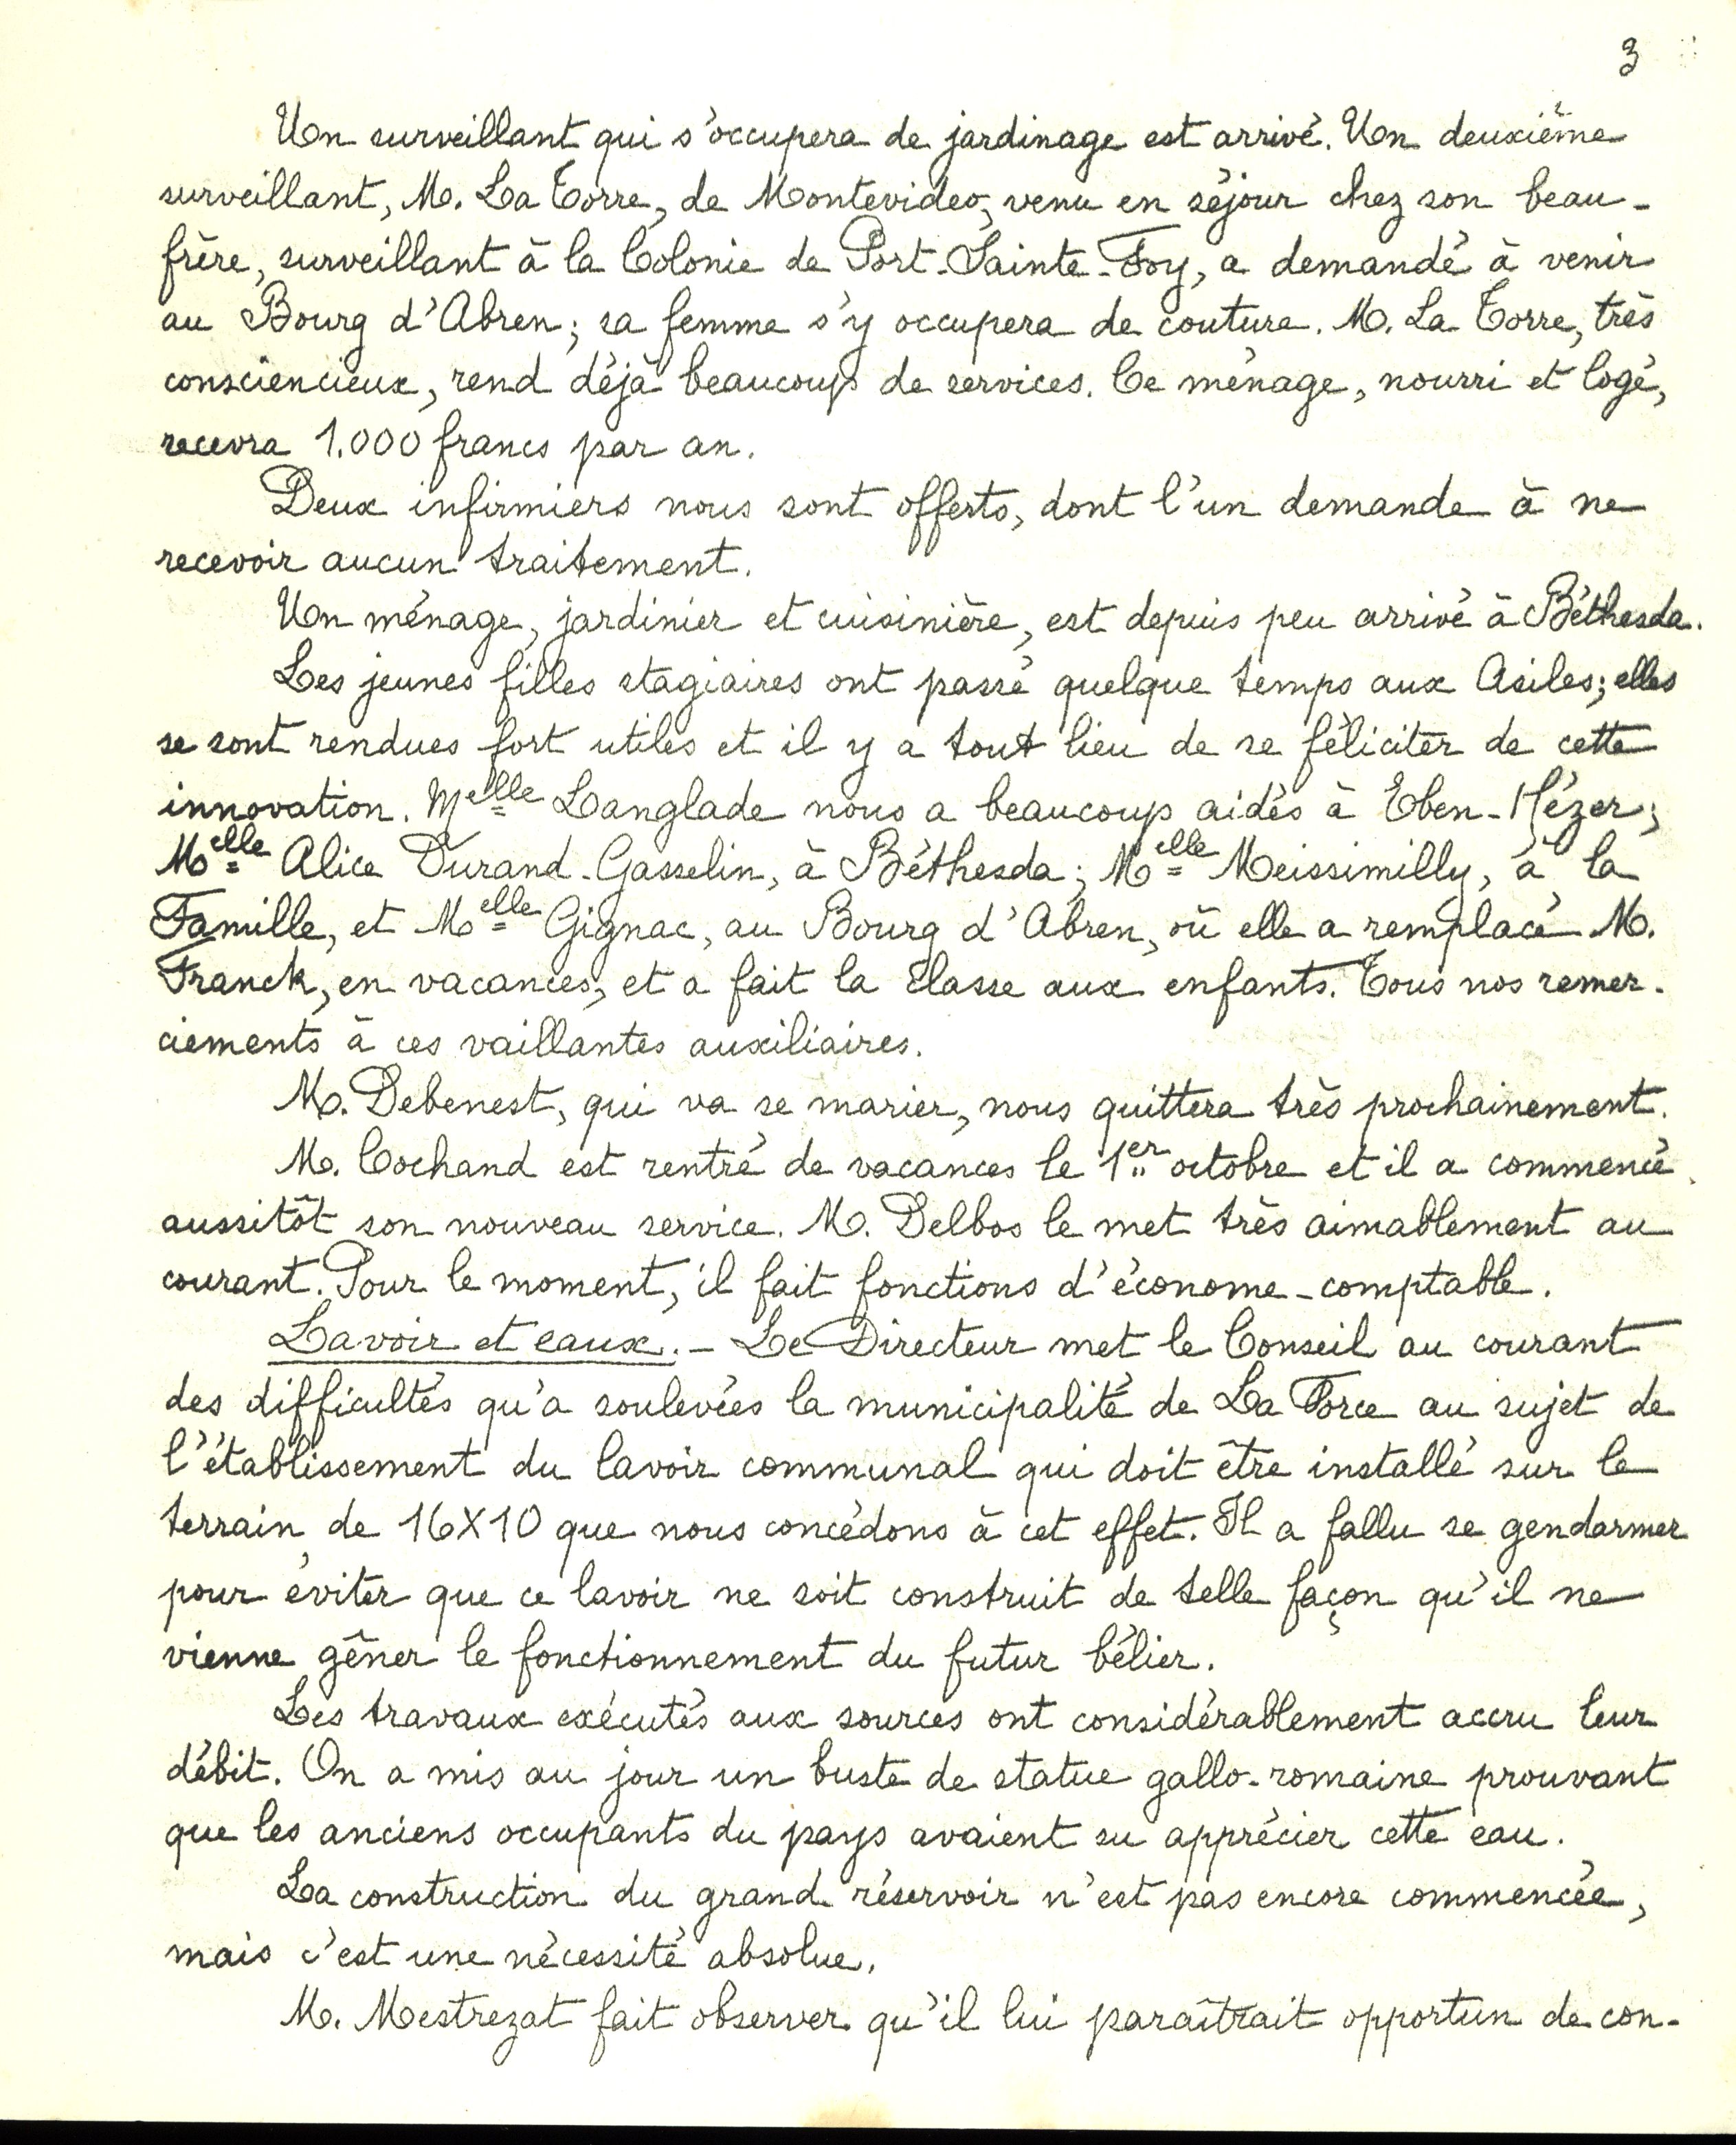 3
Un surveillant qui s'occupera de jardinage est arrivé. Un deuxième
surveillant, M. La Torre, de Montevideo, venu en séjour chez son beau-
frère, surveillant à la Colonie de Port-Sainte-Foy, a demandé à venir
au Bourg d'Abren; sa femme s'y occupera de couture. M. La Torre, très
consciencieux, rend déjà beaucoup de services. Ce ménage, nourri et logé,
recevra 1.000 francs par an.
Deux infirmiers nous sont offerts, dont l'un demande à ne
recevoir aucun traitement.
Un ménage, jardinier et cuisinière, est depuis peu arrivé à Béthesda.
Les jeunes filles stagiaires ont passé quelque temps aux Asiles; elles
se sont rendues fort utiles et il y a tout lieu de se féliciter de cette
innovation. Melle Langlade nous a beaucoup aidés à Eben-Hézer;
Melle Alice Durand-Gasselin, à Béthesda; Melle Meissimilly, à la
Famille, et Melle Gignac, au Bourg d'Abren, où elle a remplacé M.
Franck, en vacances, et a fait la classe aux enfants. Tous nos remer-
ciements à ces vaillantes auxiliaires.
M. Debenest, qui va se marier, nous quittera très prochainement.
M. Cochand est rentré de vacances le 1er octobre et il a commencé
aussitôt son nouveau service. M. Delbos le met très aimablement au
courant. Pour le moment, il fait fonctions d'économe-comptable.
Lavoir et eaux. - Le Directeur met le Conseil au courant
des difficultés qu'a soulevées la municipalité de La Force au sujet de
l'établissement du lavoir communal qui doit être installé sur le
terrain de 16X10 que nous concédons à cet effet. Il a fallu se gendarmer
pour éviter que ce lavoir ne soit construit de telle façon qu'il ne
vienne gêner le fonctionnement du futur bélier.
Les travaux exécutés aux sources ont considérablement accru leur
débit. On a mis au jour un buste de statue gallo-romaine prouvant
que les anciens occupants du pays avaient su apprécier cette eau.
La construction du grand réservoir n'est pas encore commencée,
mais c'est une nécessité absolue.
M. Mestrezat fait observer qu'il lui paraîtrait opportun de con-